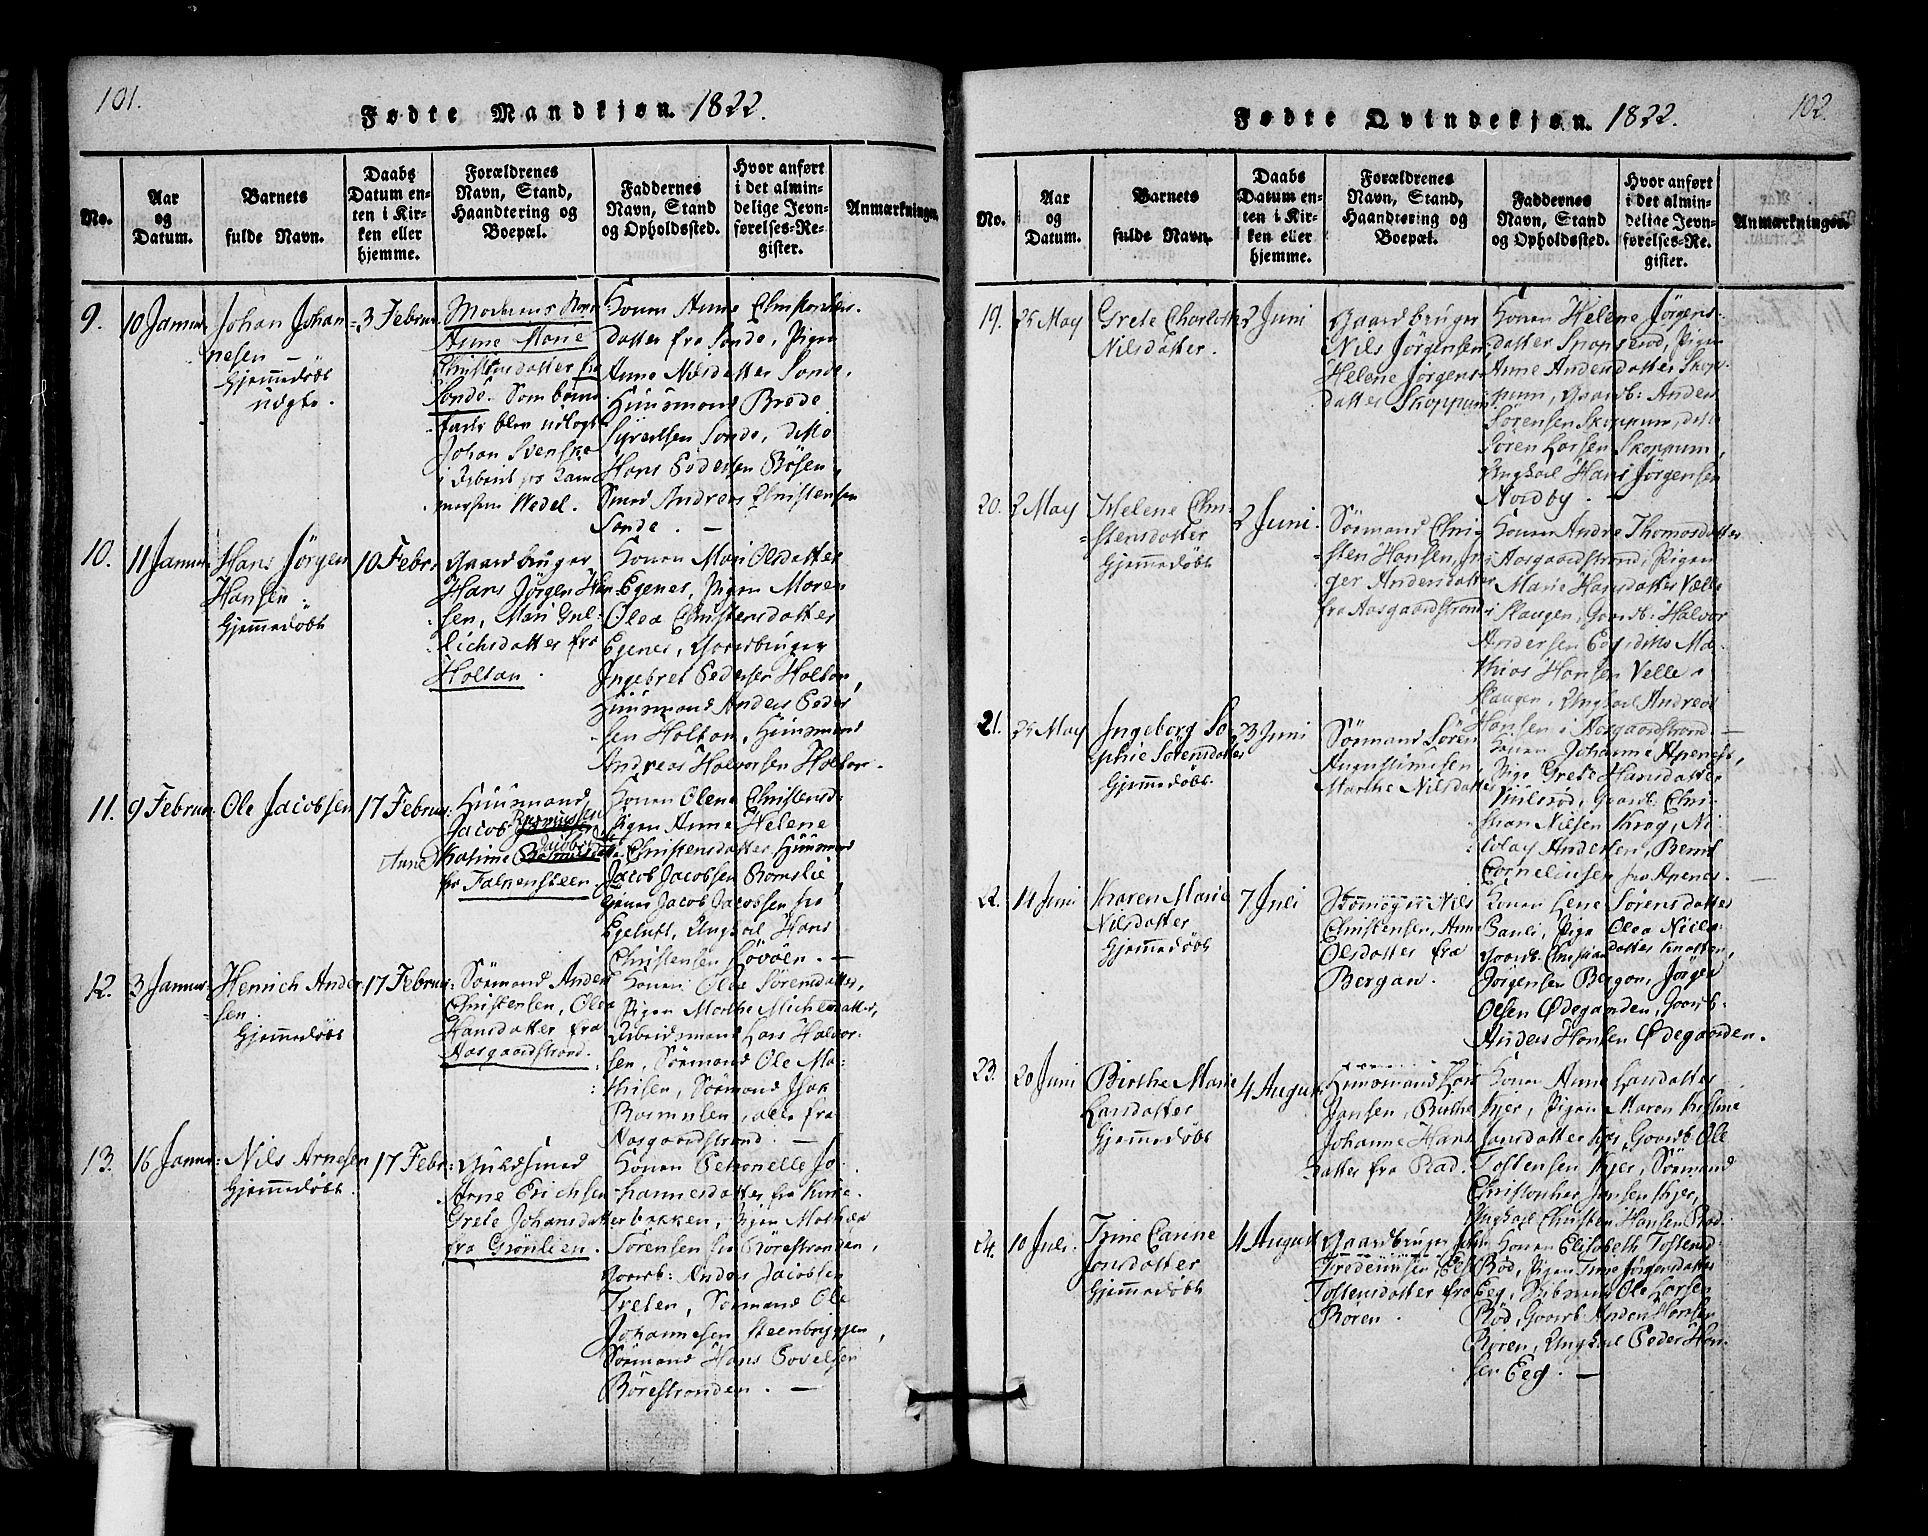 101.
Fødte Mandkjøn. 1822.
No.
Aar
og
Datum.
Barnets
fulde Navn.
Daabs
Datum en-
ten i Kir-
ken eller
hjemme.
Forældrenes
Navn, Stand,
Haandtering og
Boepæl.
Faddernes
Navn, Stand
og Opholdssted.
Hvor anført
i det almin-
delige Jevn-
førelses-Re-
gister.
Anmærkninger.
9.
10 Januar
Johan Johan-
nesen –
Hjemmedøbt
uægte.
3 Februar
Anne Marie
Christensdatter fra
Sonde. Som barne
fader blev udlagt
Johan Svenske
i Arbeid
Wedel.
Konen Anne Christophers-
datter fra Sonde, Pigen
Anne Nilsdatter Sonde,
Huusmand Brede
Sonde, ditto
Hans Pedersen
Smed Andreas Christensen
Sonde. –
10.
11 Januar
Hans Jørgen
Hansen.
Hjemmedøbt
10 Febr:
Gaardbruger
Hans Jørgen Han-
sen, Mari Gul-
lichsdatter fra
Holtan.
Konen Mari Olsdatter
Egenes, Pigen Maren
Olea Christensdatter
Egenes, Gaardbruger
Ingebret Pedersen Holtan,
Huusmand Anders Peder
sen Holtan, Huusmand
Andreas Halvorsen Holtan.
11.
9 Februar:
Ole Jacobsen
17 Februar:
Huusmand
Jacob Rasmussen
Anne Katrine
fra Falkensteen
Konen Olene Christensd:
Pigen Anne Helene
Christensdatter Huusmand
Jacob Jacobsen
Jacob Jacobsen fra
Ungkarl Hans
Christensen Løvøen. –
12.
3 Januar:
Henrich Ander-
sen.
Hjemmedøbt
17 Februar:
Sømand Anders
Christensen, Olea
Hansdatter fra
Aasgaardstrand.
Konen Olea Sørensdatter,
Pigen Marthe
Arbeidsmand Lars Halvor-
sen, Sømand Ole Ma-
thisen, Sømand Isak
Rasmusen, alle fra
Aasgaardstrand. –
13.
16 Januar:
Nils Arnesen
Hjemmedøbt.
17 Febr:
Guldsmed
Arne Erichsen
Grete Johansdatter
fra Grønlien.
Konen Petronelle Jo-
hannesdatter fra Kirke-
bakken, Pigen Mathea
Sørensen fra Borrestranden,
Gaardb: Anders Jacobsen
Sømand Ole
Johannesen Steenbryggen,
Sømand Hans Povelsen
Børrestranden. –
102.
Fødte Qvindekjøn. 1822.
No.
Aar
og
Datum.
Barnets
fulde Navn.
Daabs
Datum en-
ten i Kir-
ken eller
hjemme.
Forældrenes
Navn, Stand,
Haandtering og
Boepæl.
Faddernes
Navn, Stand
og Opholdssted.
Hvor anført
i det almin-
delige Jevn-
førelses-Re-
gister.
Anmærkninger.
19.
25 May
Grete Charlotte
Nilsdatter.
2 Juni
Gaardbruger
Nils Jørgensen,
Helene Jørgens-
datter Skoppum
Konen Helene Jørgens-
datter Pigen
Anne Andersdatter Skop-
pum, Gaardb: Anders
Sørensen Skoppum, ditto
Søren Larsen Skoppum,
Ungkarl Hans Jørgensen
Nordby. –
20.
2 May
Helene Chri-
stensdatter
Hjemmedøbt
2 Juni
Sømand Chri-
sten Hansen,
Andersdatter
fra Aasgaardstrand
Konen Andrea Thomasdatter
Aasgaardstrand, Pigen
Marie Hansdatter Velle
Skaugen, Gaardb: Halvor
Andersen Eeg, ditto Ma-
thias Hansen Velle
Skaugen, Ungkarl Andreas
Hansen i Aasgaardstrand. –
21.
25 May
Ingeborg So-
phie Sørensdatter
Hjemmedøbt
23 Juni
Sømand Søren
Augustinusen,
Marthe Nilsdatter
Konen Johanne Apenes,
Pige Grete Hansdatter
Gaardb: Chri-
stian Nilsen Krog, Ni-
colay Andersen, Bernt
Corneliusen fra Apenes. –
22.
11 Juni
Karen Marie
Nilsdatter
Hjemmedøbt
7 Juli
Nils
Christensen, Anne
Olsdatter fra
Bergan.
Konen Lene Sørensdatter
Pige Olea Niels-
datter Knatten,
Gaardb: Christian
Jørgensen Bergan, Jørgen
Olsen Ødegaarden, Gaardb:
Anders Hansen Ødegaarden.
23.
20 Juni
Birthe Marie
Larsdatter
Hjemmedøbt
4 August
Huusmand Lars
Jansen, Birthe
Johanne Hans-
datter fra Rød.
Konen Anne Larsdatter
Kjær, Pigen Maren Kirstine
Jansdatter Kjær, Gaardb: Ole
Tostensen Kjær, Sømand
Christopher Jensen Kjær,
Ungkarl Christen Hansen Rød
24.
10 Juli.
Trine Carine
Jonsdatter
Hjemmedøbt
4 August
Gaardbruger
Tostensdatter fra
Røren.
Konen Elisabeth Tostensd:
Rød, Pigen Trine Jørgensdatter
Eeg, Ole Larsen
Rød, Gaardb: Anders Hansen
Røren, Ungkarl Peder Han-
sen Eeg. –